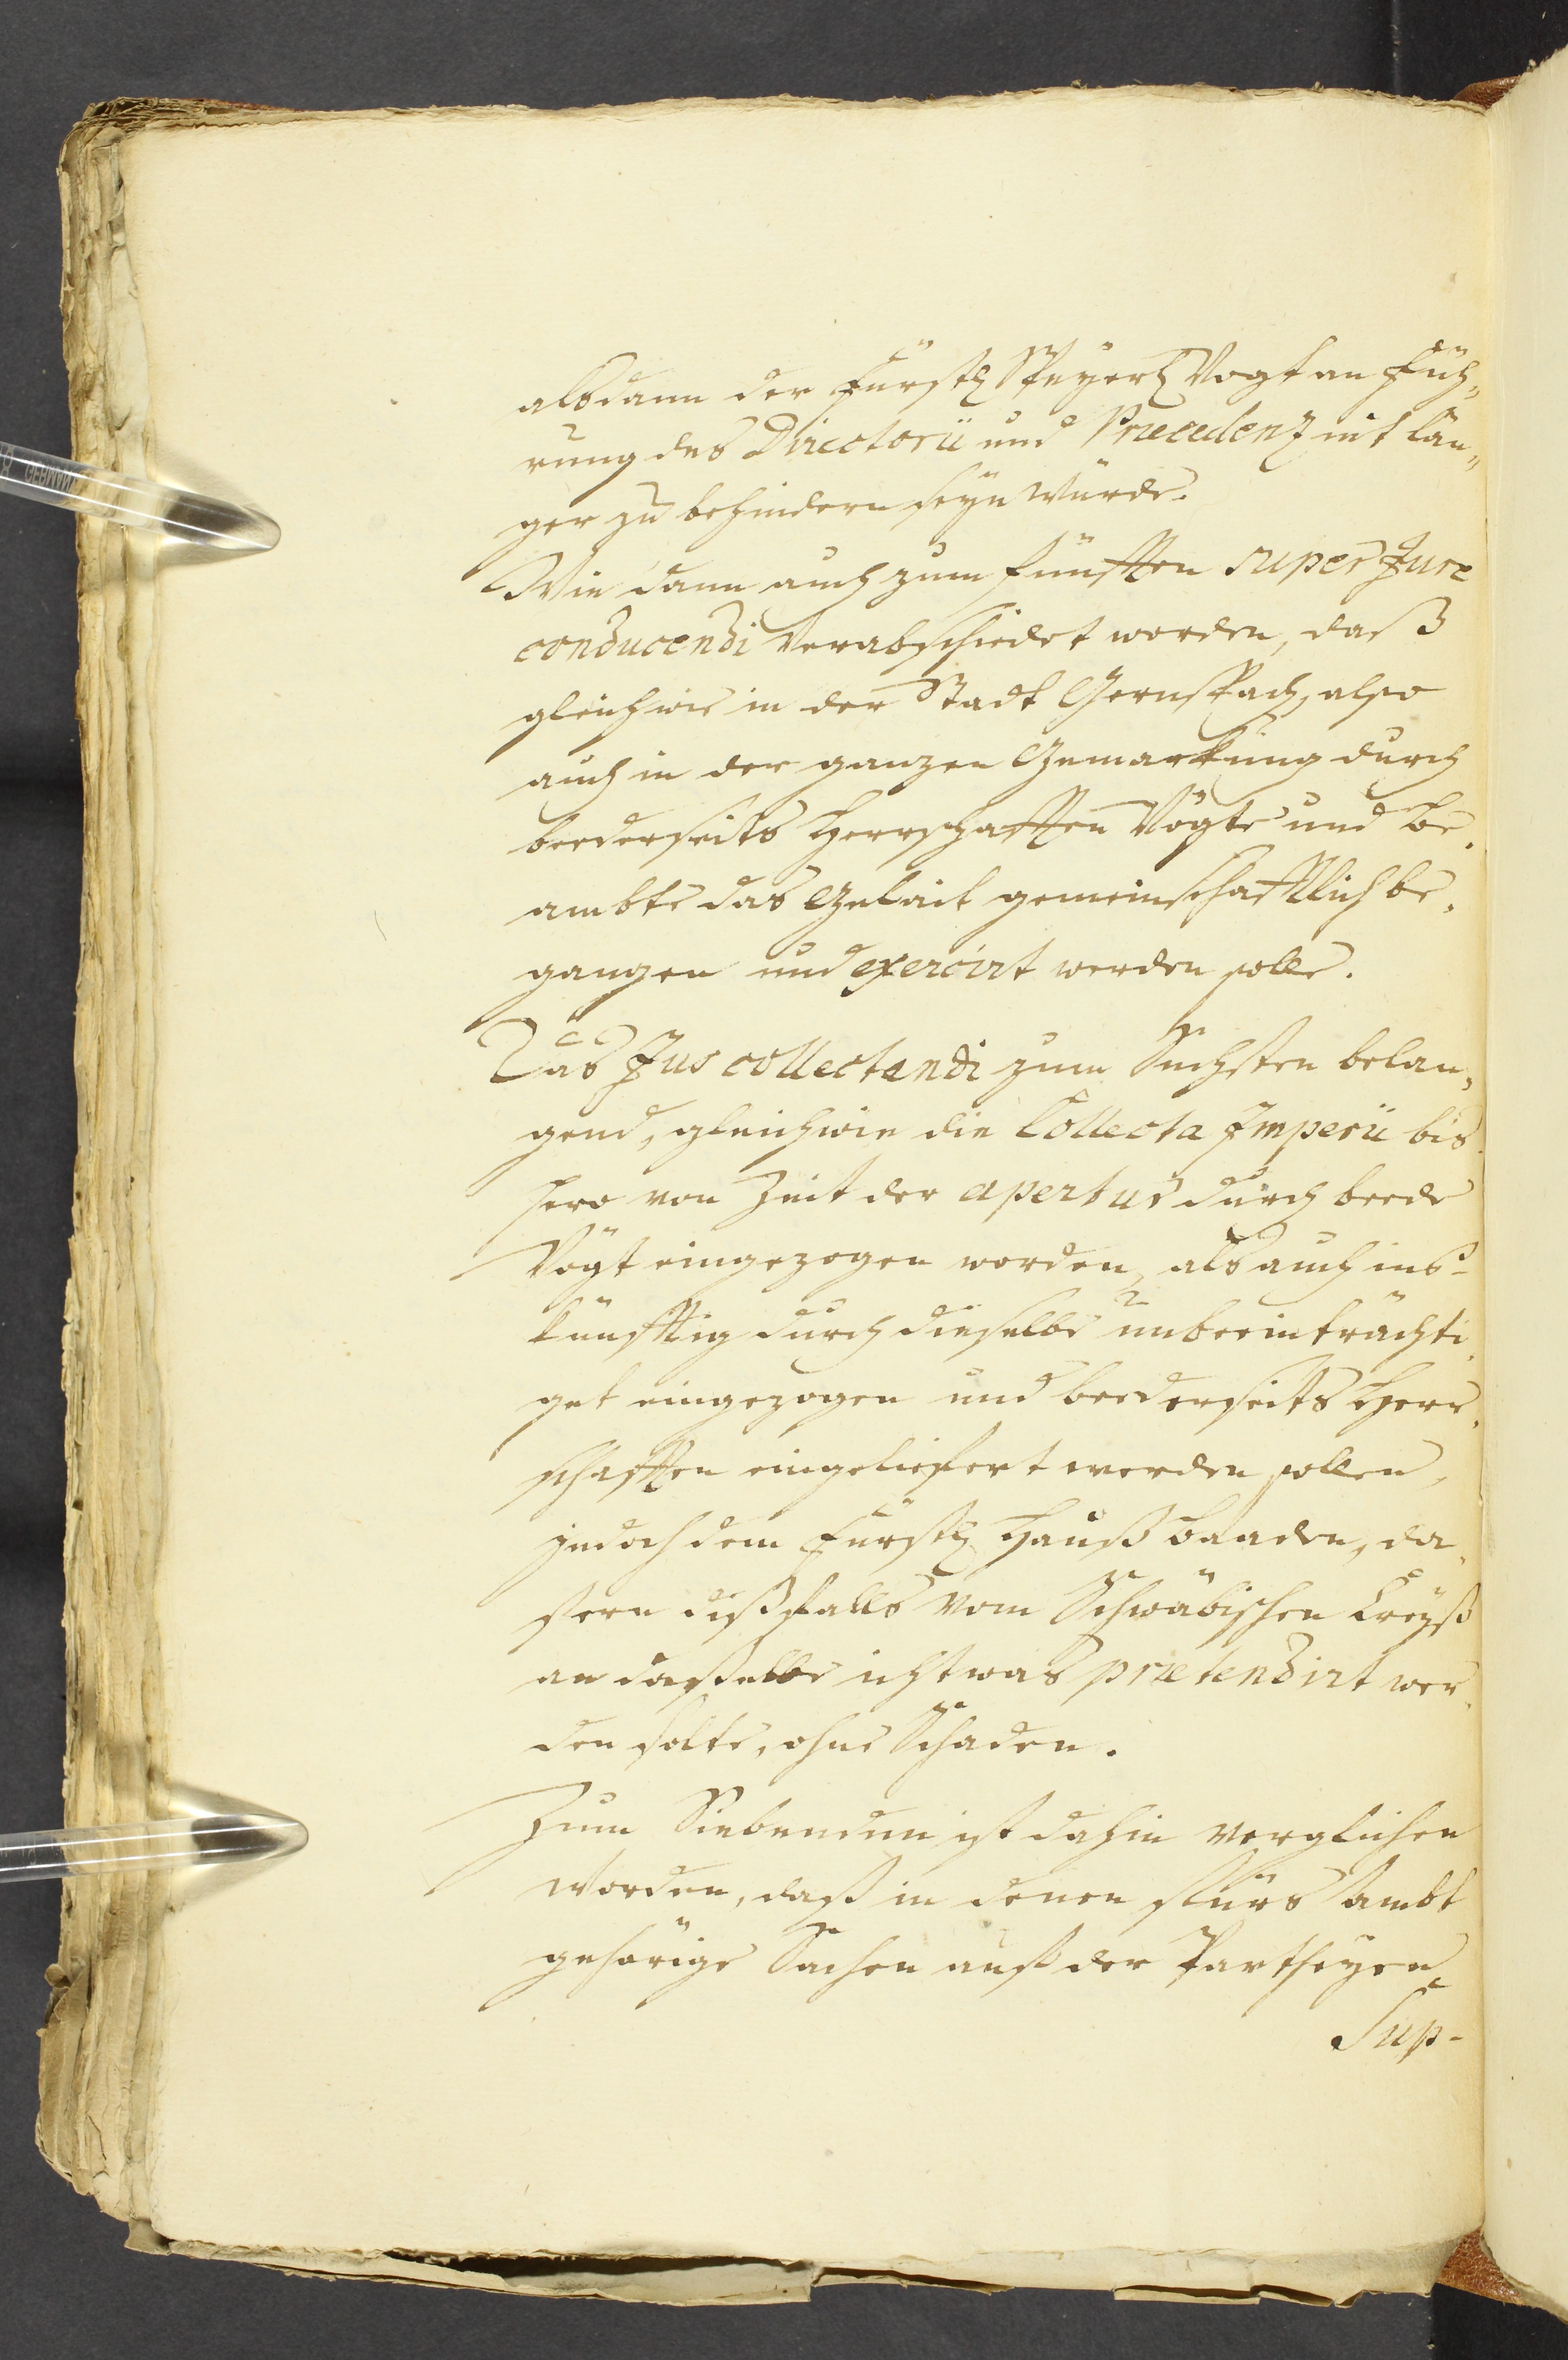 alsdann der Fürstl Speyerl Vogt an Füh„
rung des Directorii und Præcedenz nit län„
ger zu behindern seyn würde.
Wie dann auch zum fünfften super Jure
conducendi verabschiedet worden, daß
gleichwie in der Stadt Gernspach, also
auch in der ganzen Gemarkung durch
beederseits Herrschafften Vögte und Be„
ambte das Gelait gemeinschafftlich be„
gangen und exercirt werden solle.
Das Jus collectandi zum Sechsten belan„
gend, gleichwie die Collecta Imperii bis
hero von Zeit der apertur durch beede
Vögt eingezogen worden, als auch ins-
künfftig durch dieselbe unbeeinträchti„
get eingezogen und beederseits Herr„
schafften eingeliefert werden sollen,
jedoch dem Fürstl Hauß Baaden, da„
fern dißfalls vom Schwäbischen Creyß
an dasselbe ichtwas prætendirt wer„
den solte, ohne Schaden.
Zum Siebenden ist dahin verglichen
worden, daß in denen fürs Ambt
gehörige Sachen auß der Partheyen
Sup-